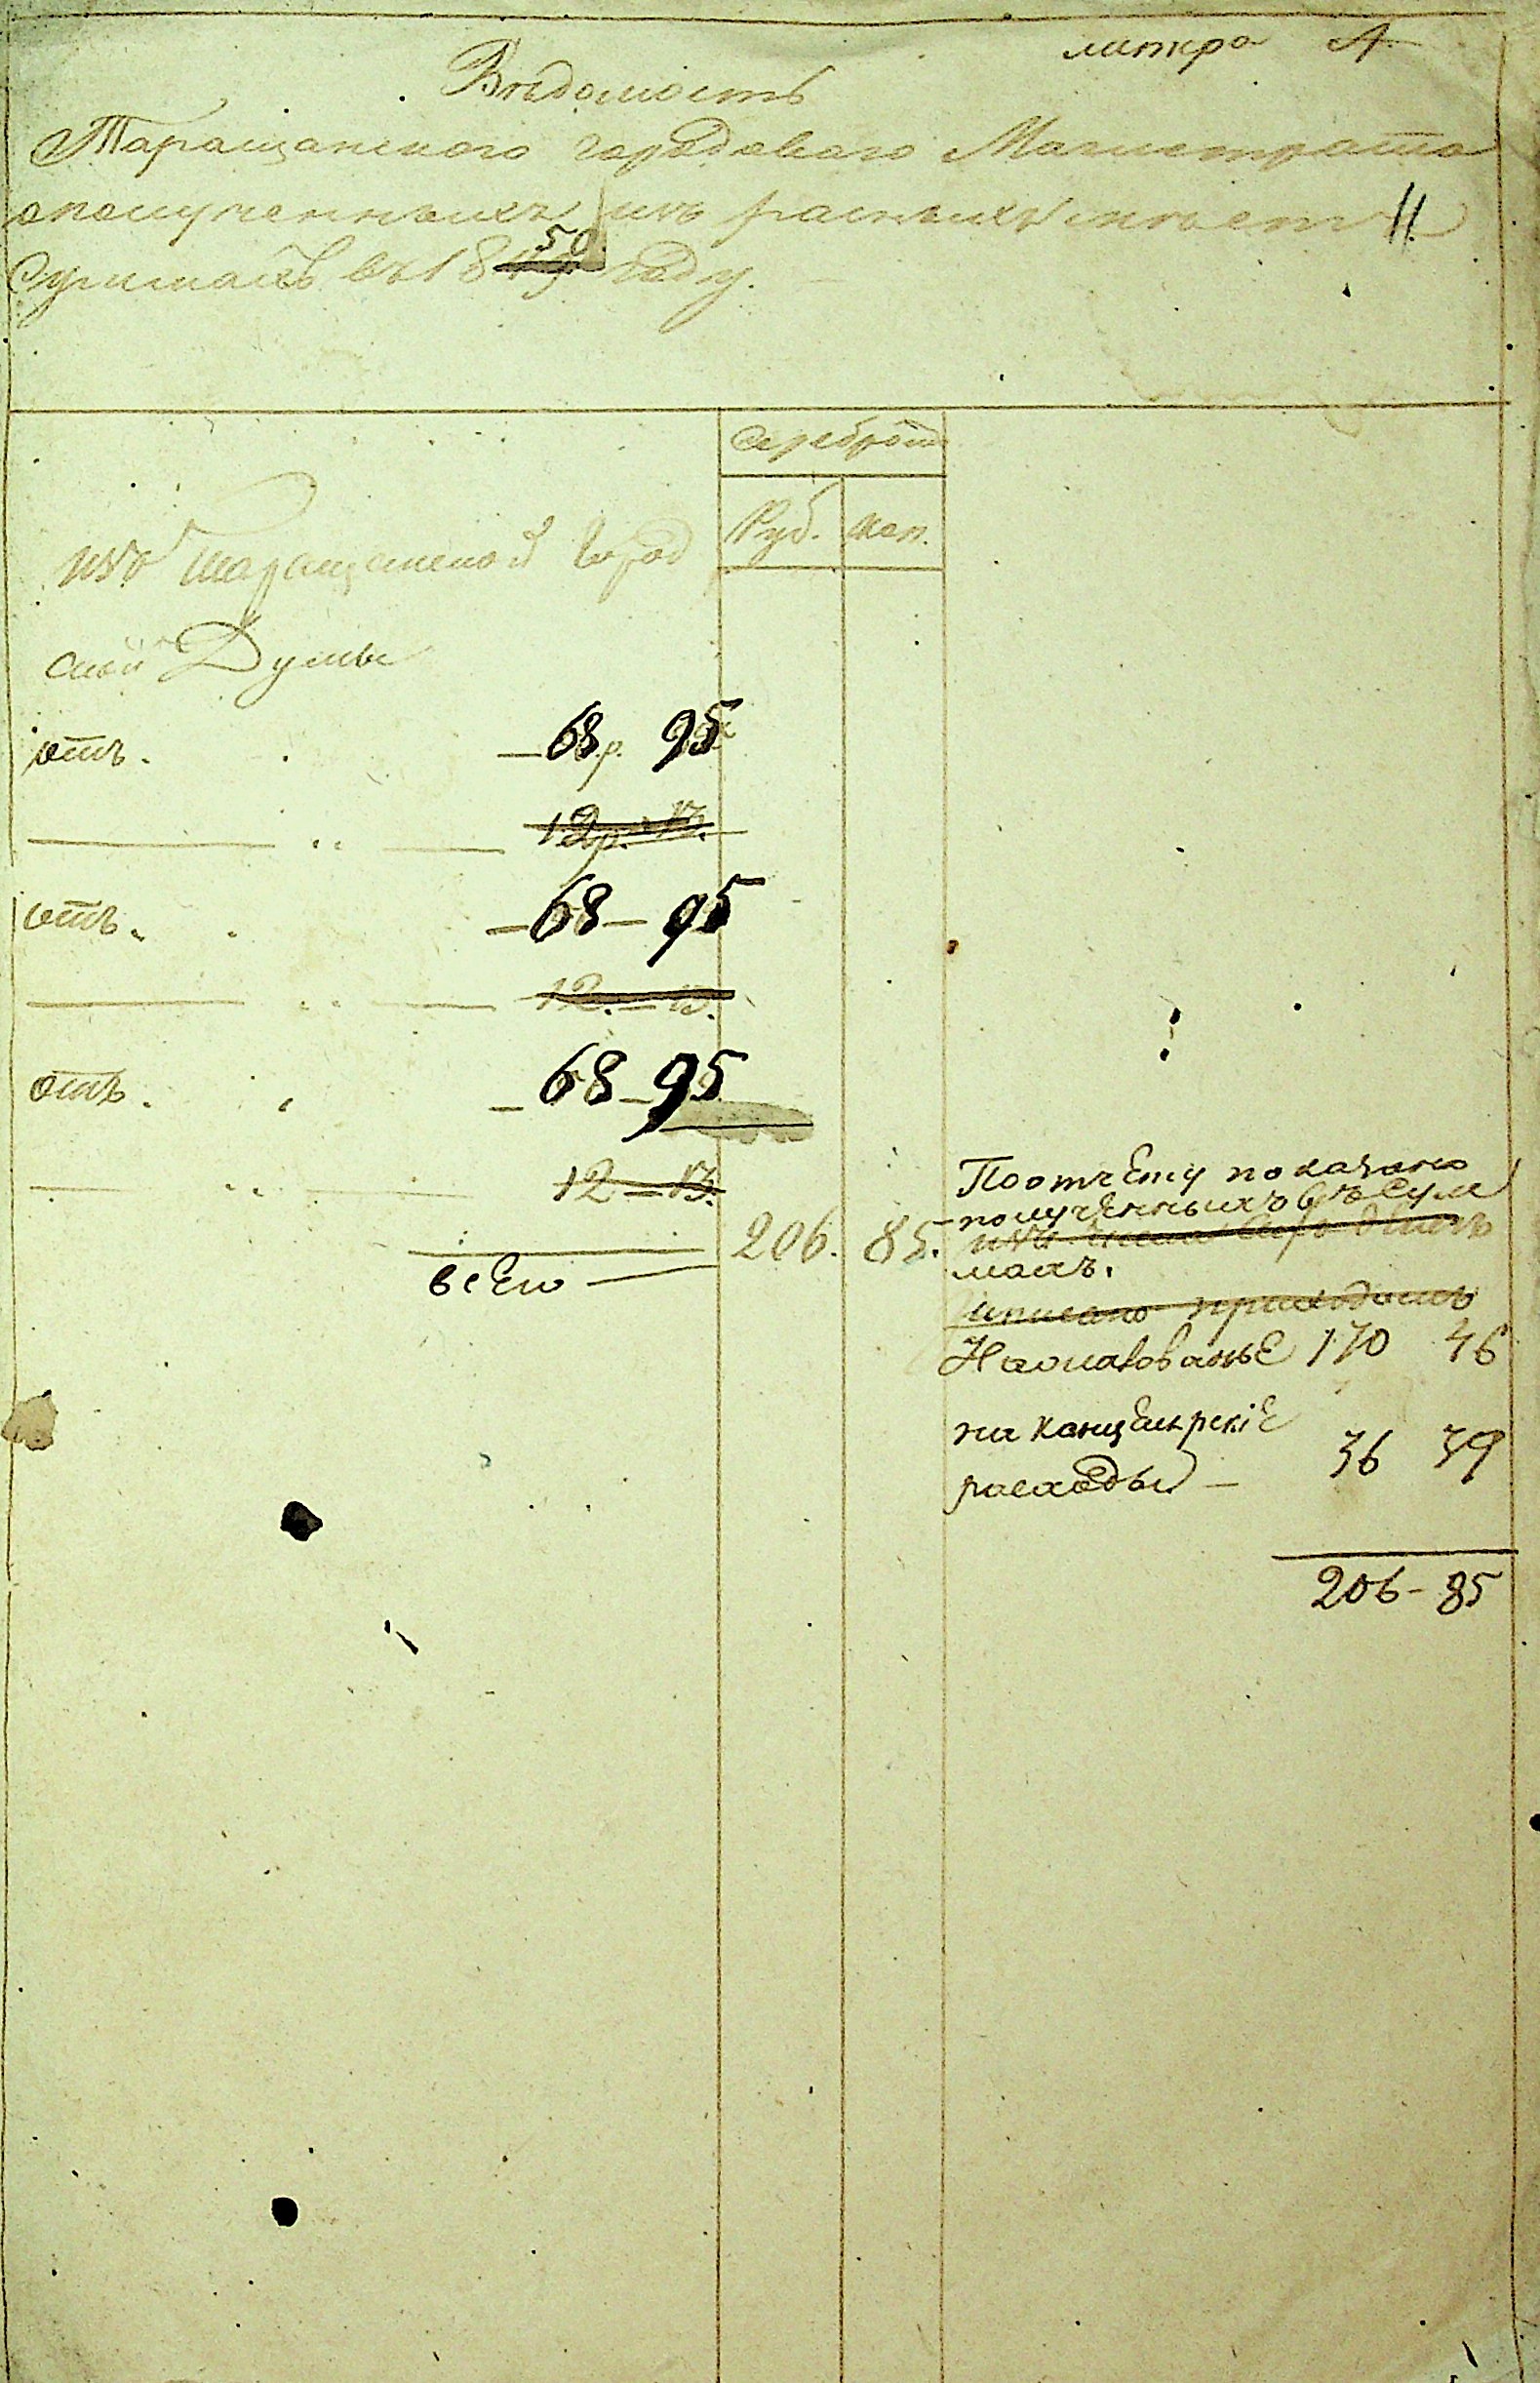 литра А
Вѣдомость
Таращанского городоваго Магистрата
о полученныхъ изъ разныхъ мѣстъ 11.
Суммахъ въ 1849 50. году.
Серебромъ
Руб. коп.
изъ Таращанской Город
ской Думы
отъ. — 68 р. 95
— „ — 12 р. 13.
отъ. — 68 — 95
— „ — 12. — 13.
отъ. — 68 — 95
— „ — 12 — 13.
всего — 206. 85.
По отчету показано
полученныхъ въ Сум
махъ.
приходомъ
На жалованье 170 46
на канцелярскіе
расходы — 36 39
206 - 85